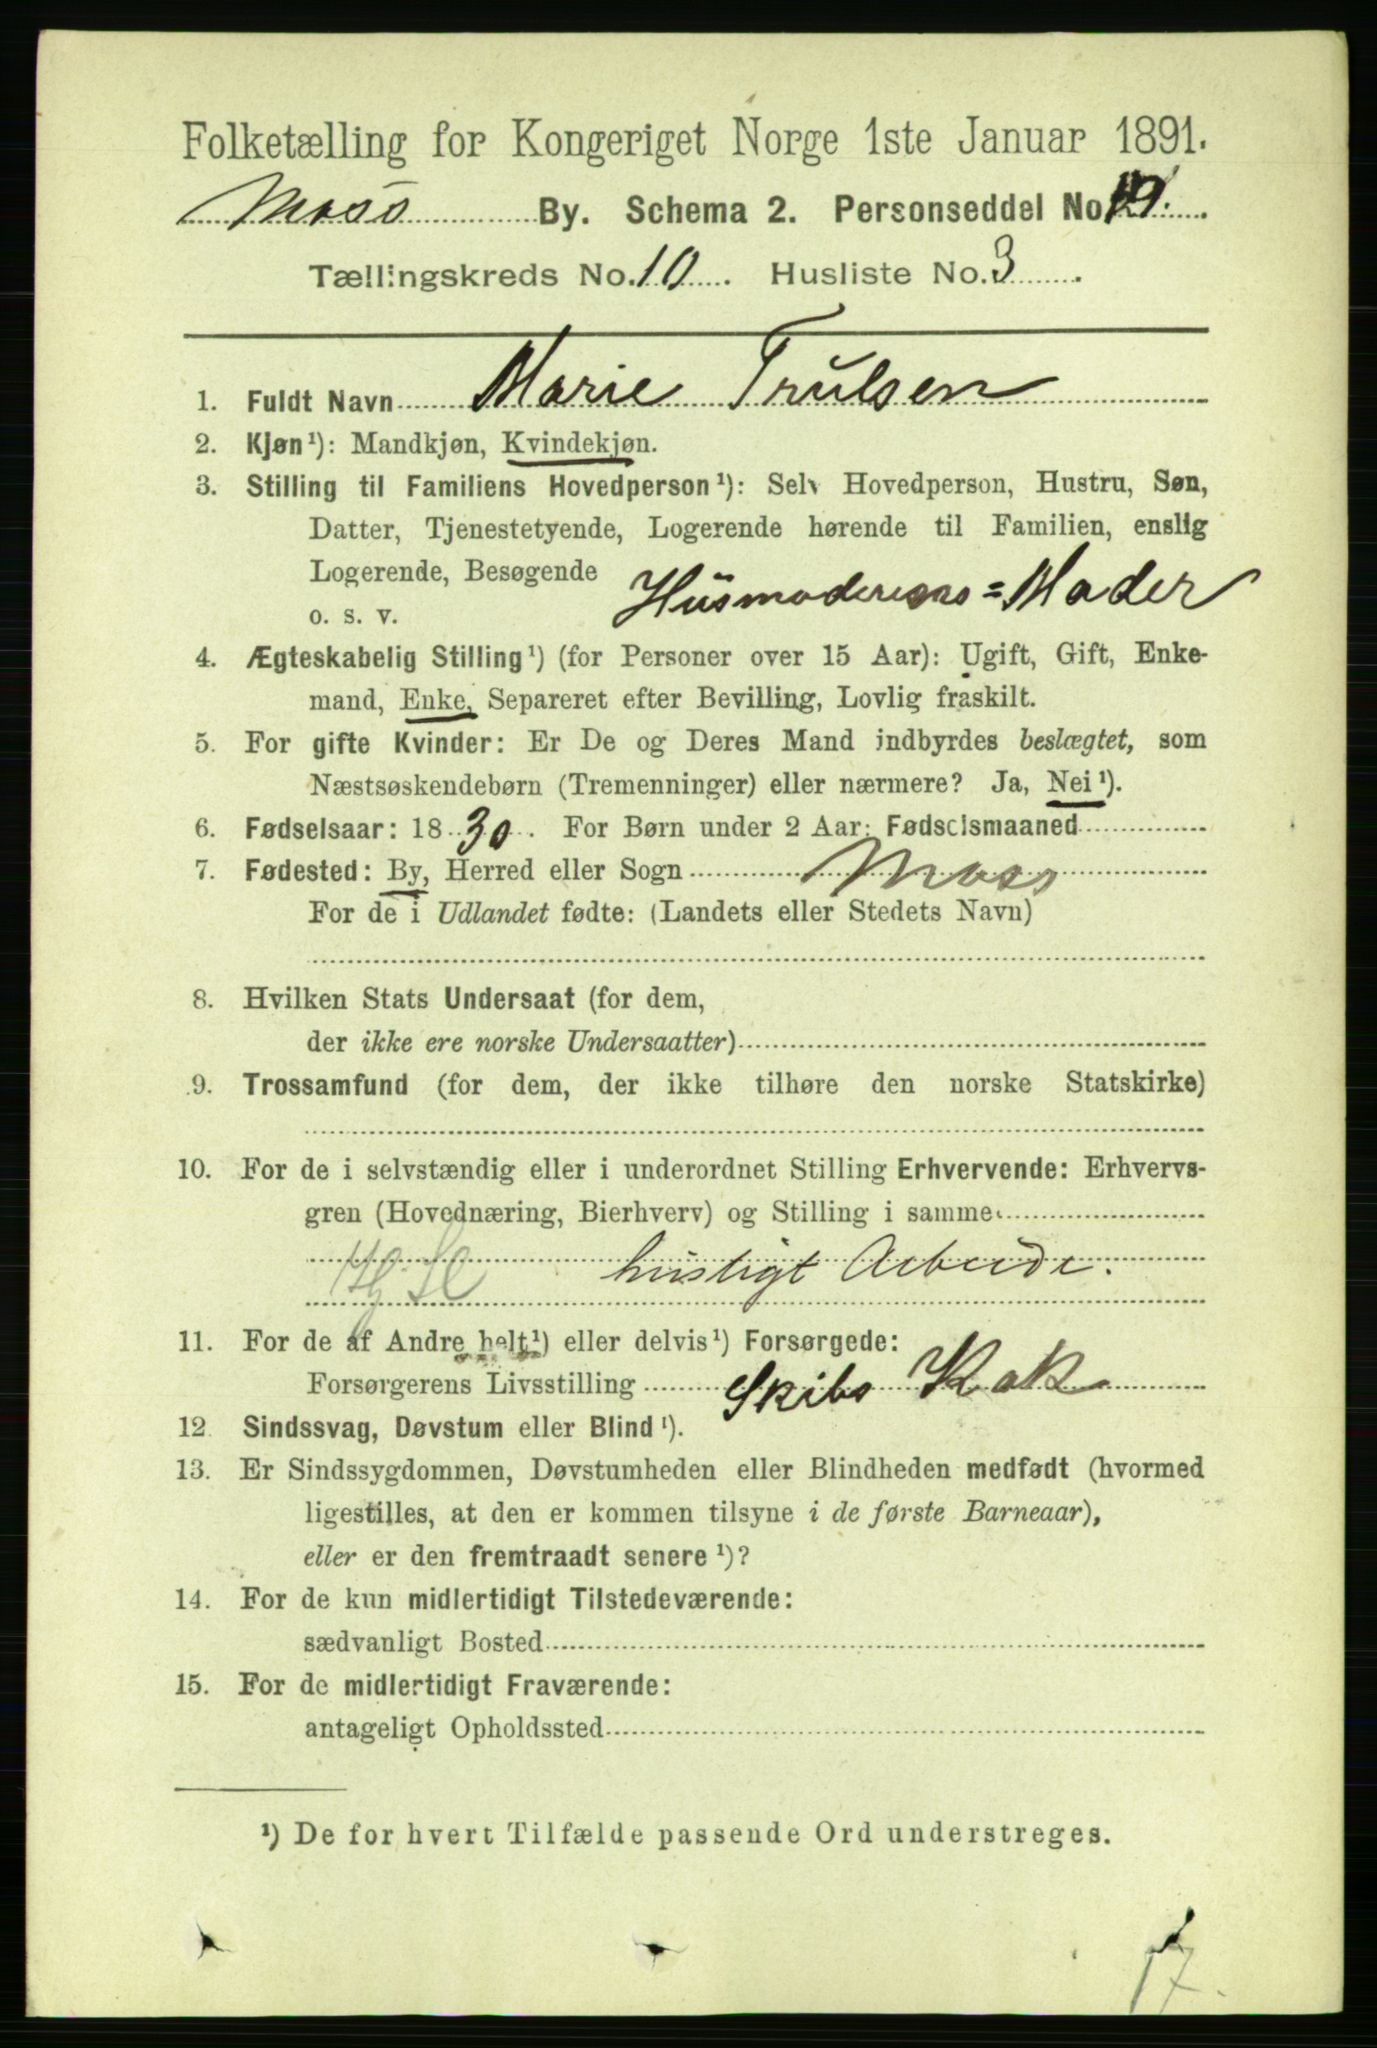 Folketælling for Kongeriget Norge 1ste Januar 1891.
Moss By. Schema 2. Personseddel No. 19.
Tællingskreds No. 10. Husliste No. 3.
1. Fuldt Navn Marie Trulsen
2. Kjøn¹): Mandkjøn, Kvindekjøn.
3. Stilling til Familiens Hovedperson¹): Selv Hovedperson, Hustru, Søn,
Datter, Tjenestetyende, Logerende hørende til Familien, enslig
Logerende, Besøgende
o. s. v. Husmoderens = Moder
4. Ægteskabelig Stilling¹) (for Personer over 15 Aar): Ugift, Gift, Enke-
mand, Enke, Separeret efter Bevilling, Lovlig fraskilt.
5. For gifte Kvinder: Er De og Deres Mand indbyrdes beslægtet, som
Næstsøskendebørn (Tremenninger) eller nærmere? Ja, Nei¹).
6. Fødselsaar: 1830. For Børn under 2 Aar: Fødselsmaaned
7. Fødested: By, Herred eller Sogn Moss
For de i Udlandet fødte: (Landets eller Stedets Navn)
8. Hvilken Stats Undersaat (for dem,
der ikke ere norske Undersaatter)
9. Trossamfund (for dem, der ikke tilhøre den norske Statskirke)
10. For de i selvstændig eller i underordnet Stilling Erhvervende: Erhvervs-
gren (Hovednæring, Bierhverv) og Stilling i samme
husligt Arbeide.
11. For de af Andre helt¹) eller delvis¹) Forsørgede:
Forsørgerens Livsstilling Skibs Kok
12. Sindssvag, Døvstum eller Blind¹).
13. Er Sindssygdommen, Døvstumheden eller Blindheden medfødt (hvormed
ligestilles, at den er kommen tilsyne i de første Barneaar),
eller er den fremtraadt senere¹)?
14. For de kun midlertidigt Tilstedeværende:
sædvanligt Bosted
15. For de midlertidigt Fraværende:
antageligt Opholdssted
¹) De for hvert Tilfælde passende Ord understreges.
17.